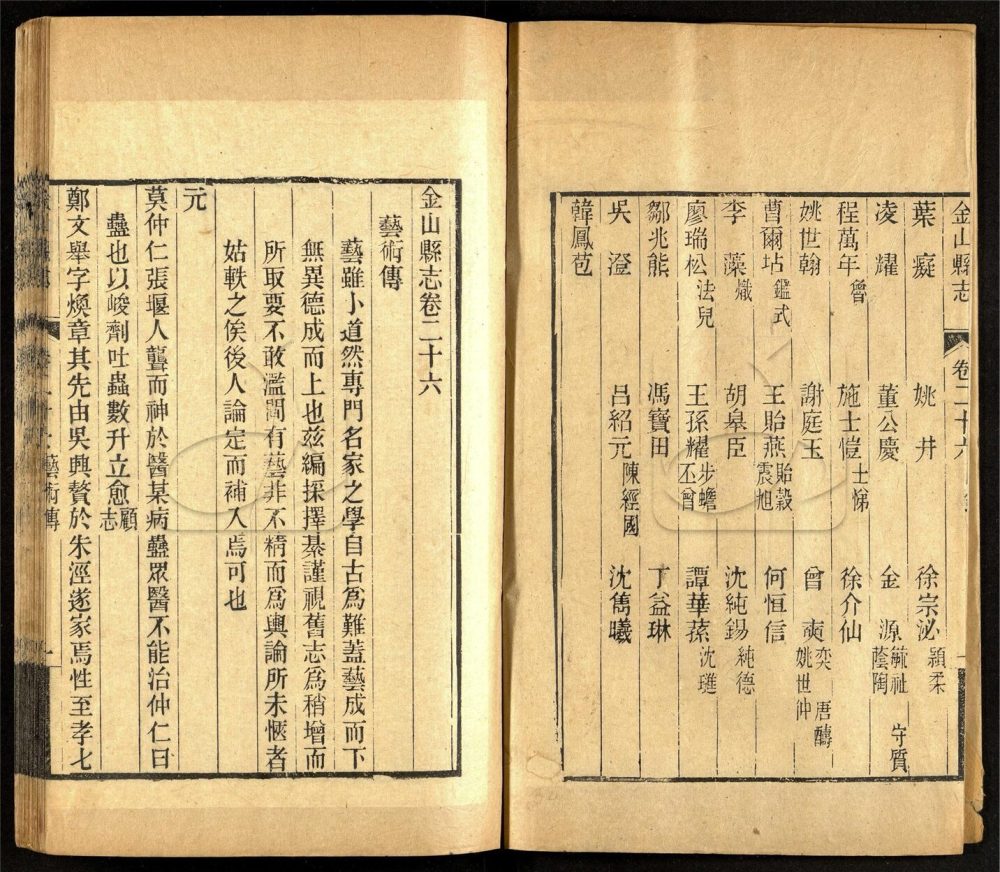 金山縣志 卷二十六
葉癡 姚井 徐宗泌 穎柔
凌耀 董公慶 金源 毓祉 蔭陶 守質
程萬年 曾 施士愷 士悌 徐介仙
姚世翰 謝庭玉 曾奭 奕 唐醻 姚世仲
曹爾坫 鑑式 王貽燕 貽穀 震旭 何恒信
李藻 熾 胡皋臣 沈純錫 純德
廖瑞松 法兒 王孫耀 步蟾 丕曾 譚華蓀 沈璡
鄒兆熊 馮寶田 丁益琳
吳澄 呂紹元 陳經國 沈雋曦
韓鳳苞
金山縣志卷二十六
藝術傳
藝雖小道然專門名家之學自古爲難蓋藝成而下
無異德成而上也兹編採擇綦謹視舊志爲稍增而
所取要不敢濫間有藝非不精而爲輿論所未愜者
姑軼之俟後人論定而補入焉可也
元
莫仲仁張堰人聾而神於醫某病蠱眾醫不能治仲仁曰
蠱也以峻劑吐蟲數升立愈 顧志
鄭文舉字煥章其先由吳興贅於朱涇遂家焉性至孝七
藝術傳